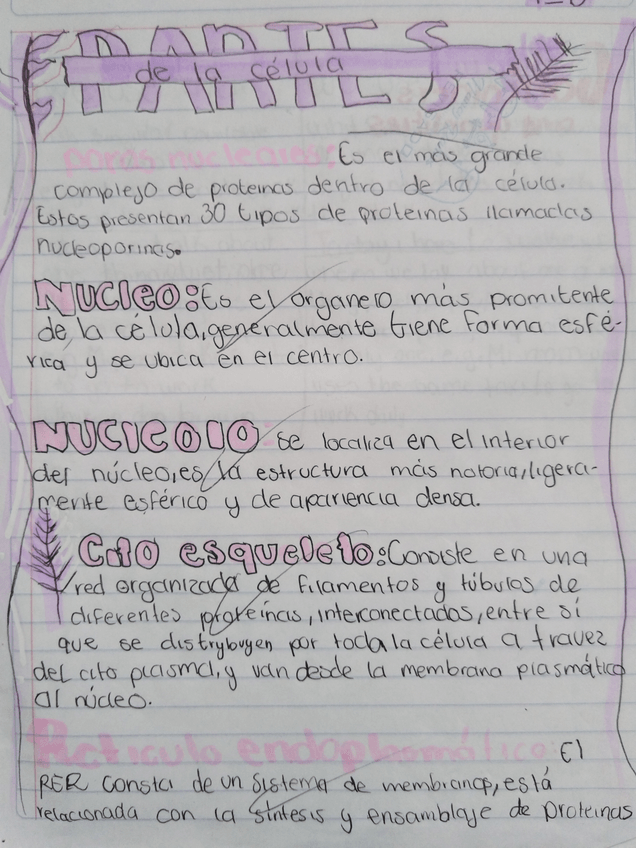 PARTES
de la célula
poros nucleares: Es el más grande
complejo de proteinas dentro de la célula.
Estos presentan 30 tipos de proteinas llamadas
nucleoporinas.
NUCleo: Es el organelo más promitente
de la célula, generalmente tiene forma esfé-
rica y se ubica en el centro.
NUCleolo: se localiza en el interior
del núcleo, es la estructura más notoria, ligera-
mente esférico y de apariencia densa.
Cito esqueleto: Consiste en una
red organizada de filamentos y túbulos de
diferentes proteínas, interconectados, entre sí
que se distrybuyen por toda la célula a travez
del cito plasma, y van desde la membrana plasmática
al núcleo.
Reticulo endoplasmático: El
RER consta de un sistema de membranas, está
relacionada con la síntesis y ensamblaje de proteinas